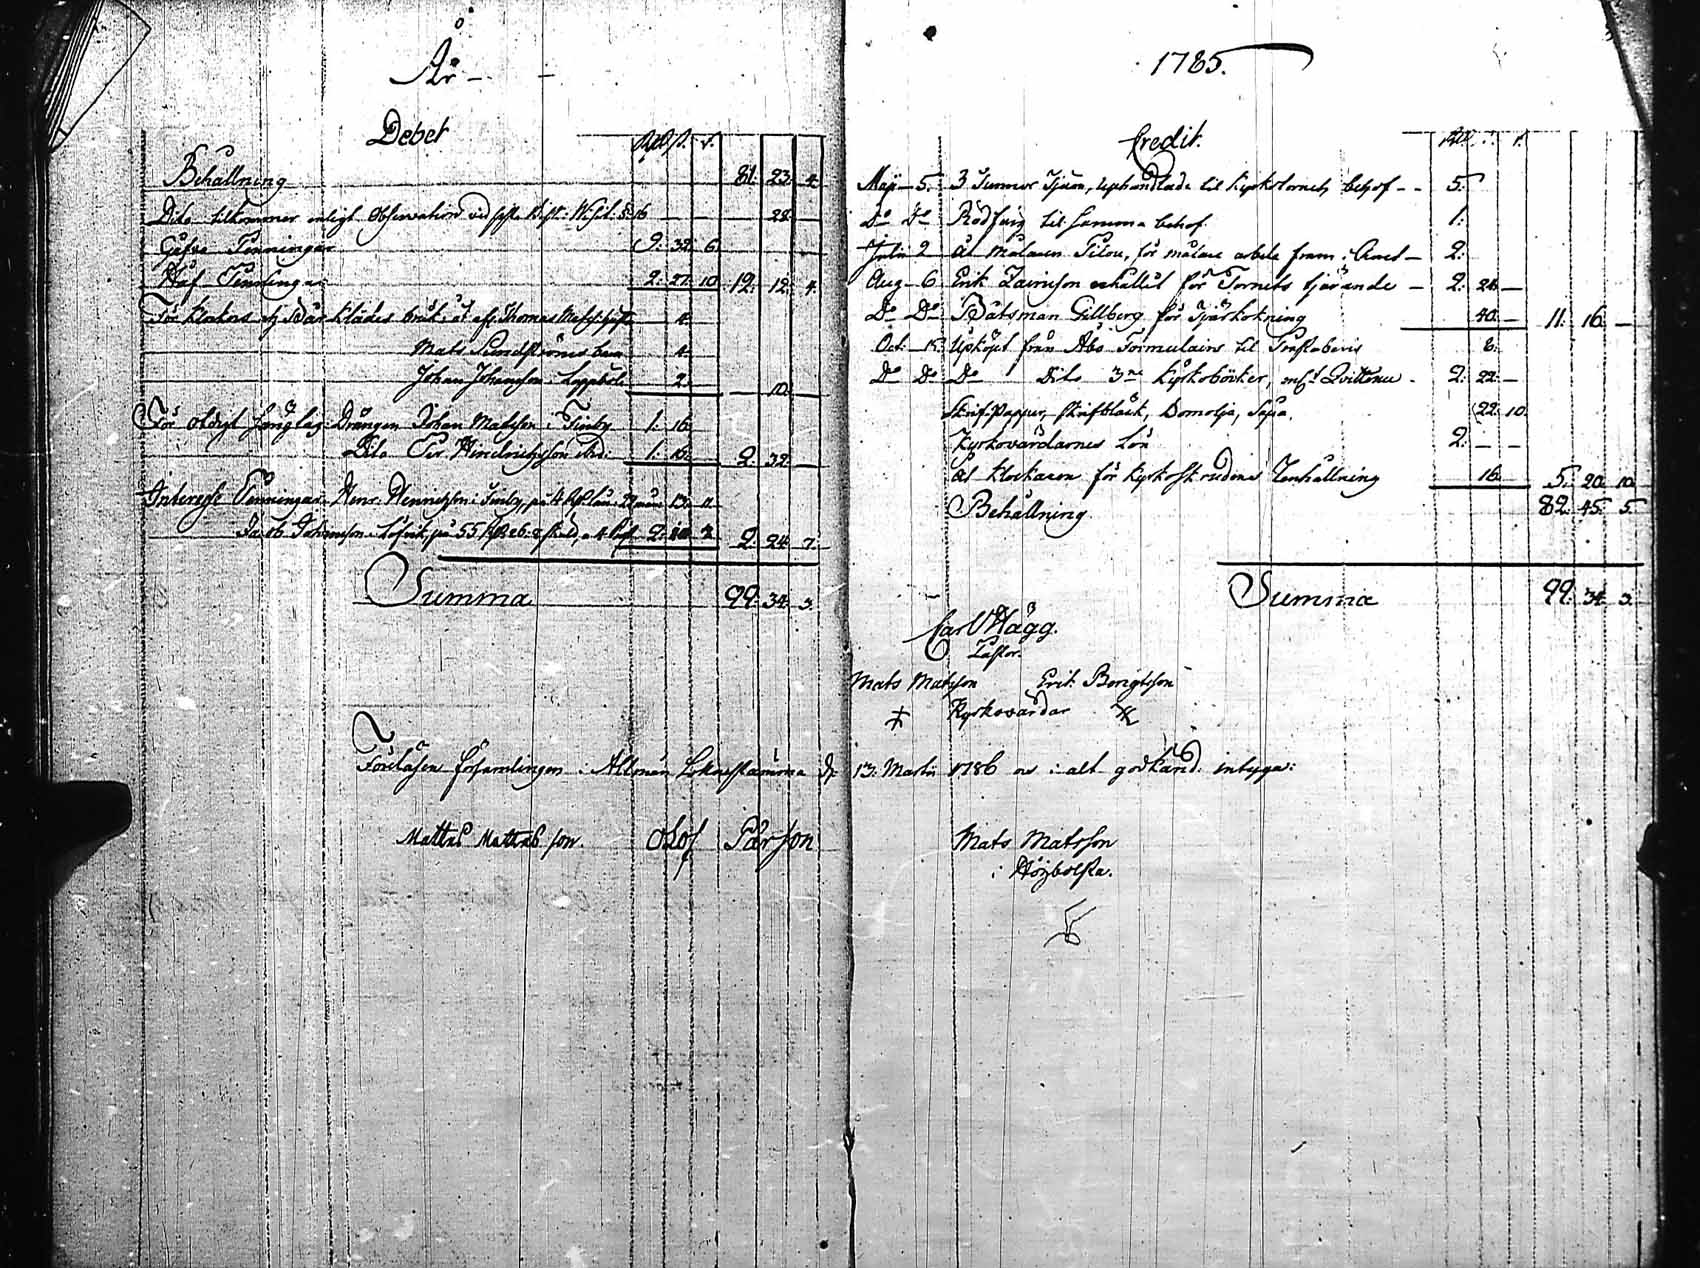 År
Debet
Rd. s. r.
Behållning 81. 23. 4.
Dito tilkommer enligt Observation vid 16 28.
Gåfvo Penningar 9. 32. 6.
Håf Penningar 2. 27. 10 12. 12. 4.
För klockors och Bår klädes bruk: åt Thomas 4.
Mats Sundströms barn 4.
Johan Johansson i 2. 10.
För olofligt Drängen Johan Matsson i Finby 1. 16.
Dito Per Hindrichsson ibid: 1. 16. 2. 32.
Interesse Penningar Henr. Henrichsson i Finby, på 4 13. 11
Jacob Johansson i på 55 2. 10 2. 24. 7.
Summa 99. 34. 3.
1785.
Credit.
Maji 5. 3 Tunnor Tjära, uphandlade til Kyrkotornets behof 5.
Do Do Rödfärg til samma behof. 1.
Julii 2 Åt Målaren för målare arbete 2.
Aug 6 Erik erhållit för Tornets tjärande 2. 24.
Do Do Båtsman Gillberg för Tjärkokning 40. 11. 16.
Oct. Upköpt från Åbo Formulairs til 8.
Do Do Do Dito 3ne Kyrkoböcker, Qvittence 2. 22.
Skrifpapper, skrifbläck, Bomolja, Såpa. 22. 10
Kyrkovärdarnes Lön 2.
åt Klockaren för Kyrkoskrudens Renhållning 16. 5. 20. 10
Behållning 82. 45. 5
Summa 99. 34. 3.
Carl Hägg.
Pastor.
Mats Matsson Erik Bengtsson
Kyrkovärdar
Föreläsen församlingen i Allmän Sockenstämma d. 13. Martii 1786 och i alt godkänd: intyga:
Mattes Mattes son Olof Pärson Mats Matsson
i Höjbolsta.